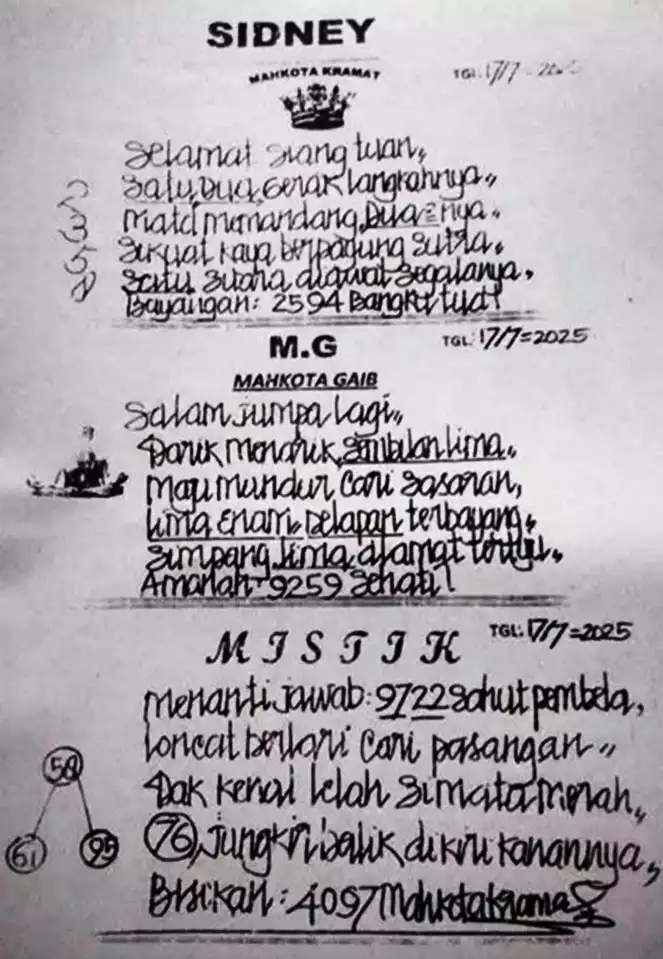 SIDNEY
MAHKOTA KRAMAT
TGL: 17/7-2025
Selamat siang tuan,,
Satu, Dua, Gerak langkahnya,,
Mata memandang, Dua=nya.,
Sekuat kaya berpayung sutra,,
Satu suara segalanya,
Bayangan: 2594 Bangku tua!
M.G
TGL: 17/7=2025
MAHKOTA GAIB
Salam jumpa lagi,,
Darik menarik, sembilan lima,,
Maju mundur cari sasaran,
lima, Enam,, Delapan terbayang,,
Simpang lima, alamat tertuju,,
Amanah-9259 sehati!
MISTIK
TGL: 17/7=2025
Menanti jawab: 9722 sahut pembela,
loncat berlari cari pasangan,,
Dak kenal lelah simata merah,,
76, jungkir balik dikiri kanannya,,
Bisikan: 4097 Mahkota kramat
61
95